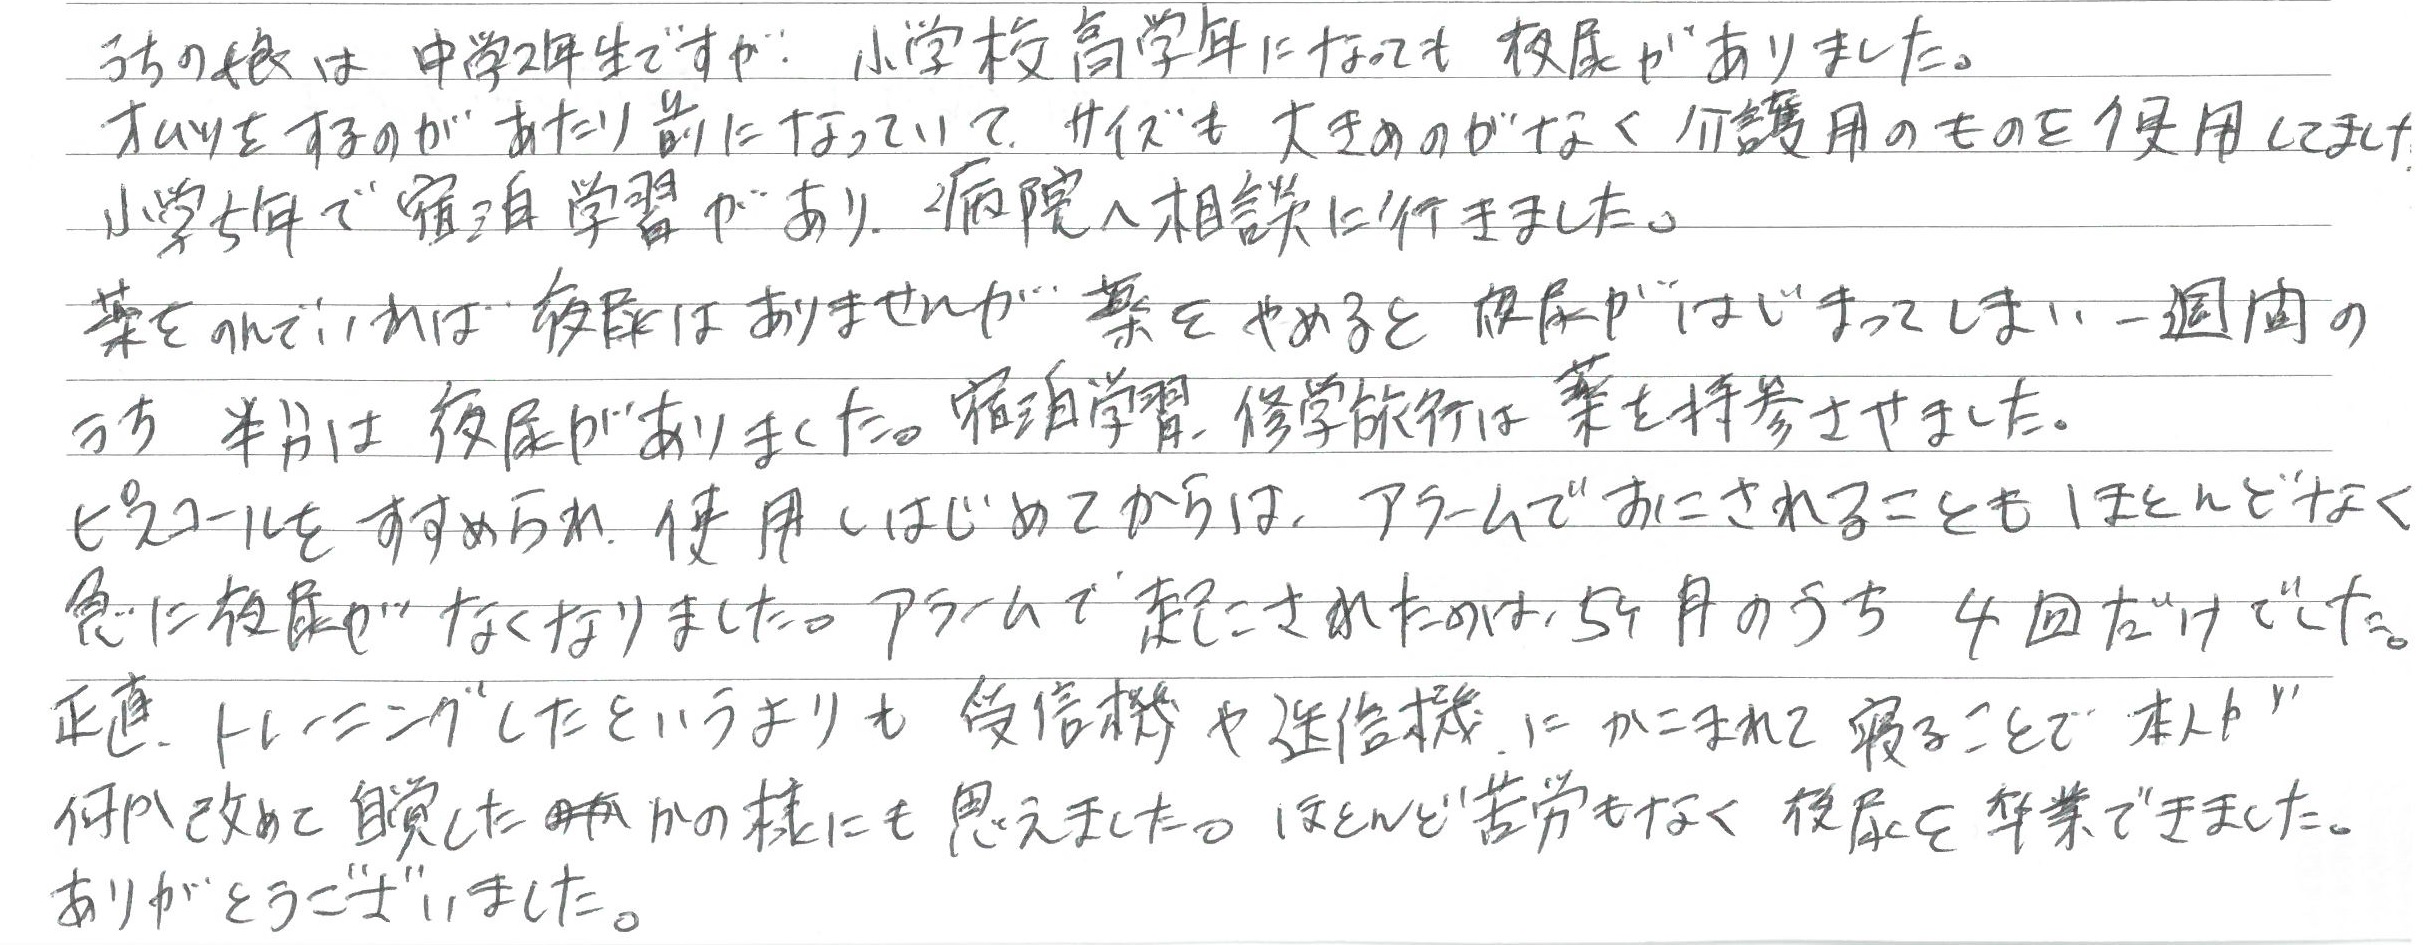 うちの娘は 中学2年生ですが、小学校高学年になっても 夜尿がありました。
オムツをするのが あたり前になっていて、サイズも 大きめのがなく 介護用のものを使用してました
小学5年で 宿泊学習があり、病院へ相談に行きました。
薬をのんでいれば 夜尿はありませんが 薬をやめると 夜尿がはじまってしまい 一週間の
うち 半分は 夜尿がありました。宿泊学習、修学旅行は 薬を持参させました。
ピスコールを すすめられ、使用しはじめてからは、アラームでおこされることもほとんどなく
急に夜尿が なくなりました。アラームで 起こされたのは、5ヶ月のうち 4回だけでした。
正直、トレーニングしたというよりも 受信機や送信機、に かこまれて 寝ることで 本人が
何か改めて 自覚した かの様にも 思えました。ほとんど苦労もなく 夜尿を 卒業できました。
ありがとうございました。